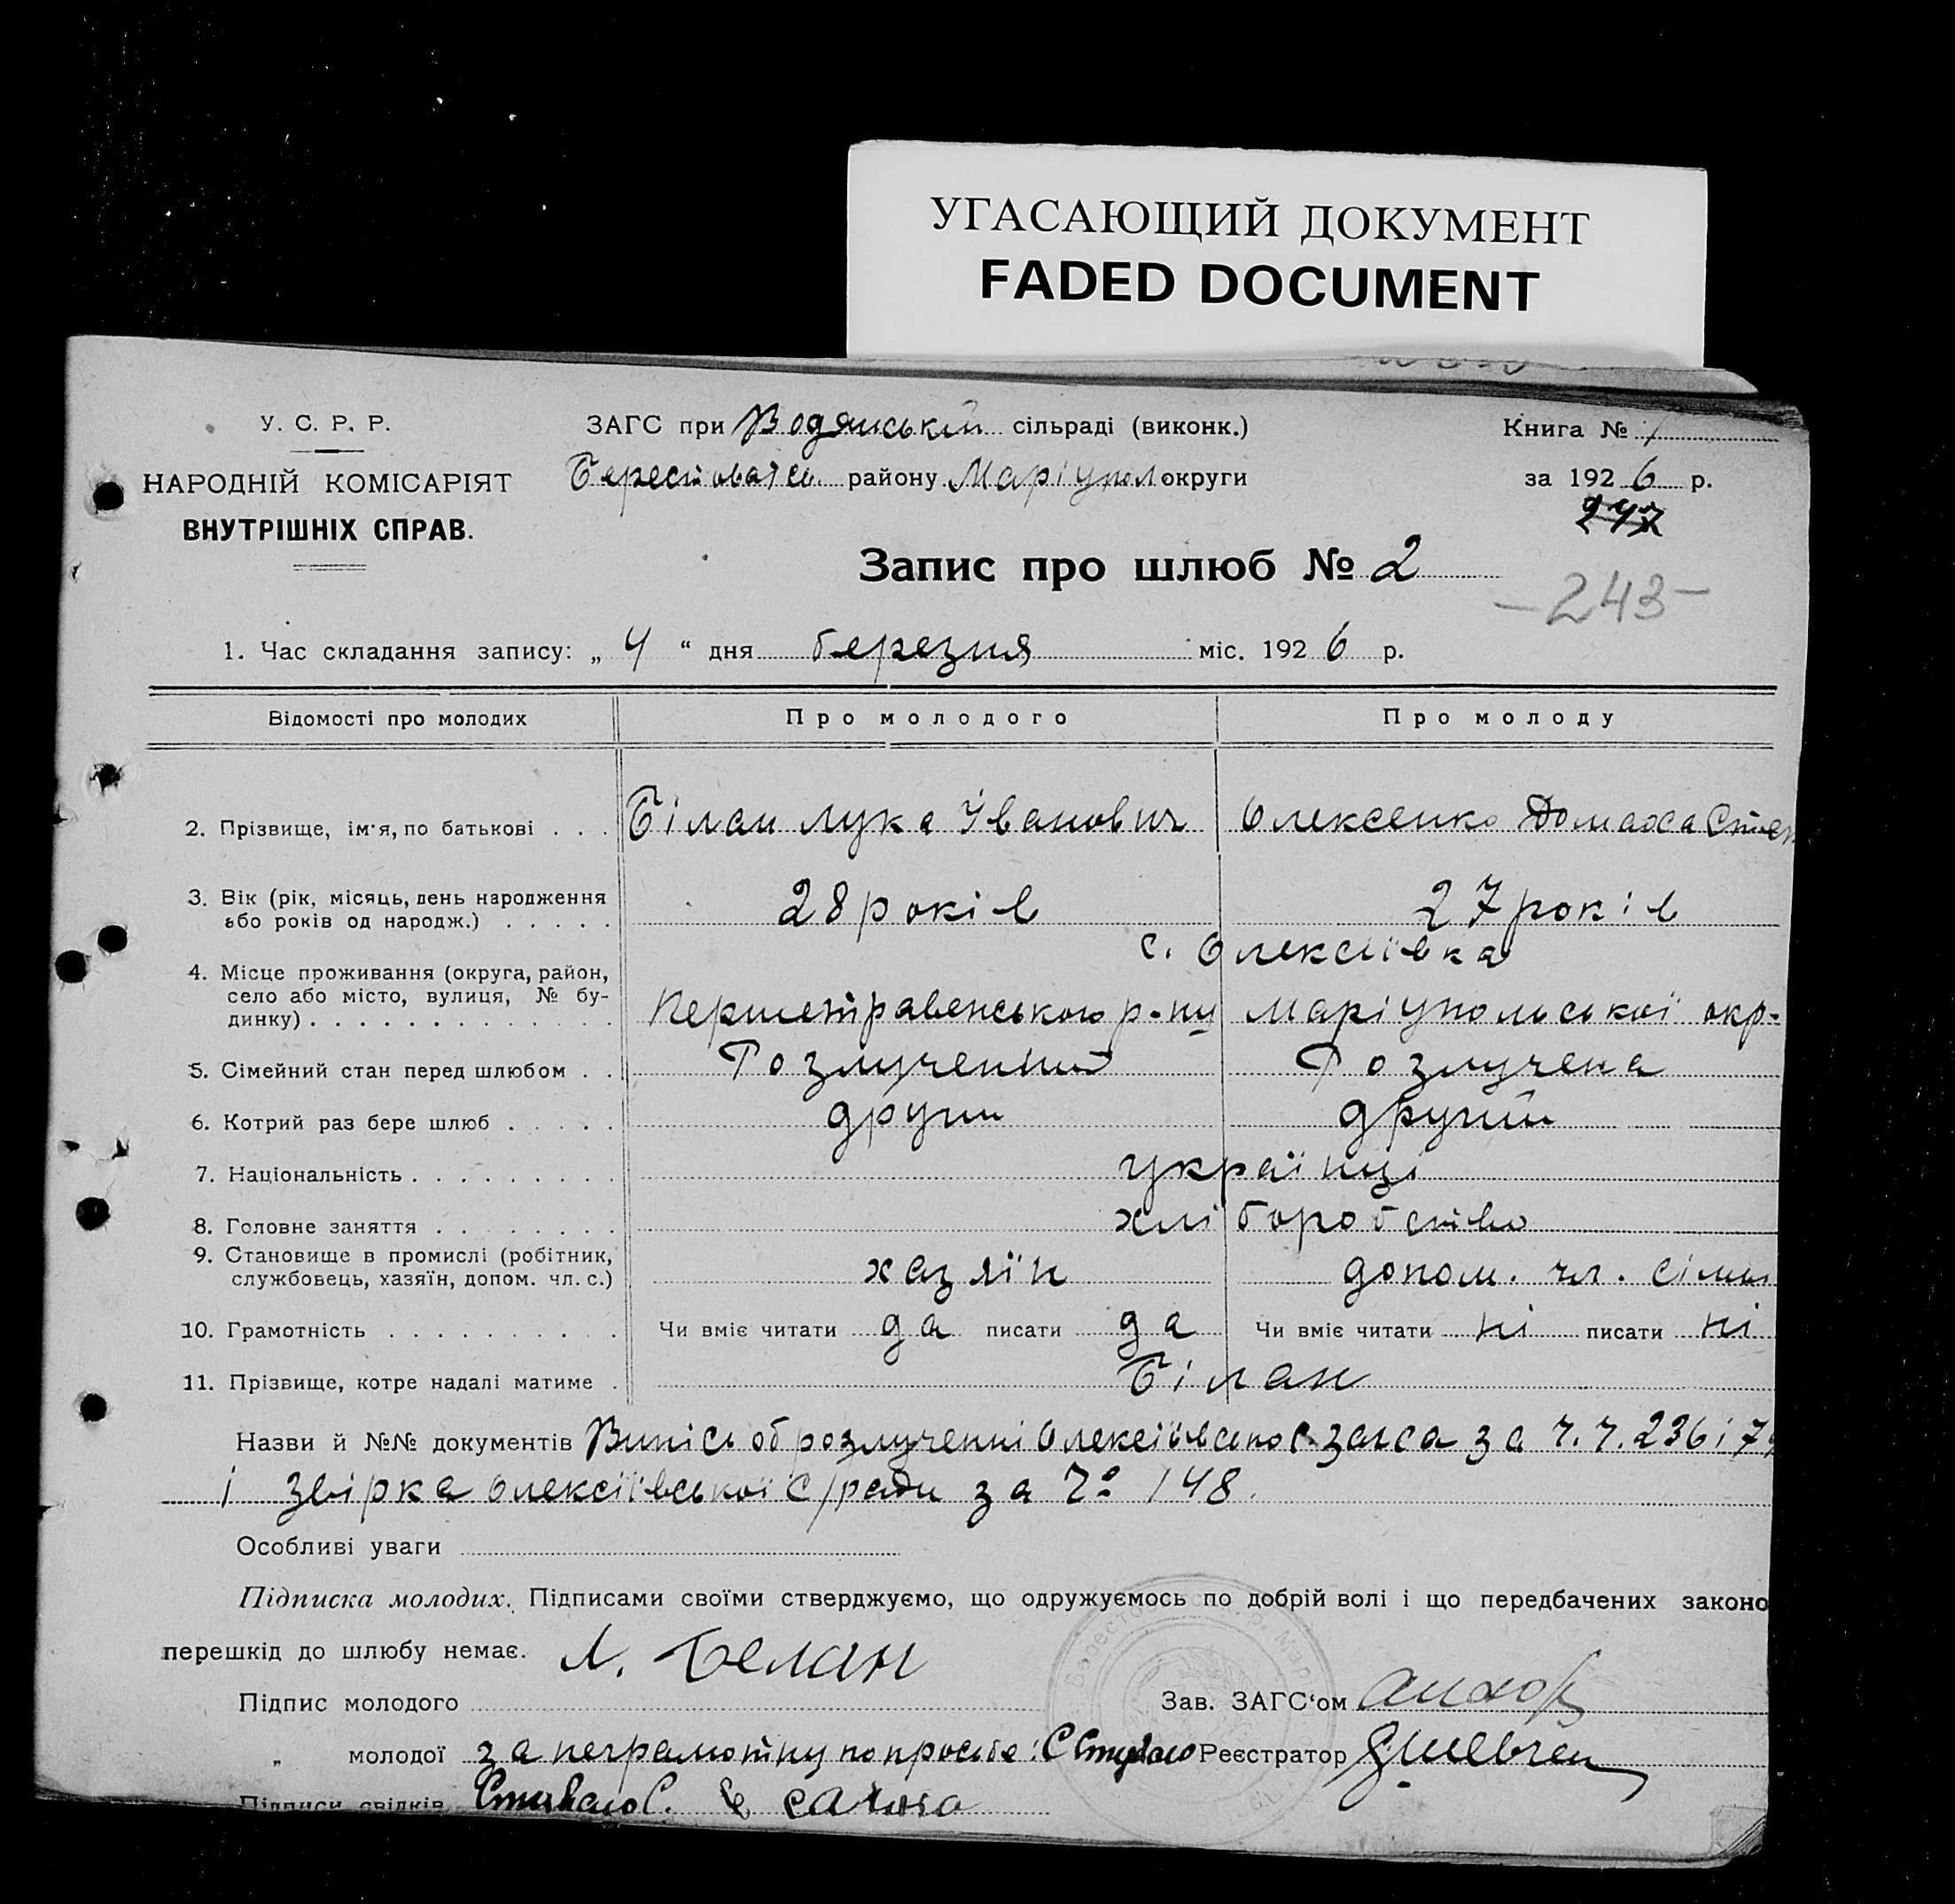 УГАСАЮЩИЙ ДОКУМЕНТ
FADED DOCUMENT
У. С. Р. Р.
НАРОДНІЙ КОМІСАРІЯТ
ВНУТРІШНІХ СПРАВ.
ЗАГС при Водянській сільраді (виконк.)
Берестоватсь. району Маріупол округи
Книга № 1
за 1926 р.
247
Запис про шлюб № 2
—243—
1. Час складання запису: „ 4 “ дня березня міс. 1926 р.
Відомості про молодих Про молодого Про молоду
2. Прізвище, ім'я, по батькові . . . Білан Лука Іванович Олексенко Домаха Степ
3. Вік (рік, місяць, день народження або років од народж.) . . . . . 28 років 27 років
4. Місце проживання (округа, район, село або місто, вулиця, № будинку) . . . с. Олексіївка
Першетравенського р-ну Маріупольської окр-
5. Сімейний стан перед шлюбом . . Розлучений Розлучена
6. Котрий раз бере шлюб . . . . . другий другий
7. Національність . . . . . . . . . українці
8. Головне заняття . . . . . . . . хліборобство
9. Становище в промислі (робітник, службовець, хазяїн, допом. чл. с.) хазяїн допом. чл. сімьи
10. Грамотність . . . . . . . . . . Чи вміє читати да писати да Чи вміє читати ні писати ні
11. Прізвище, котре надалі матиме . Білан
Назви й №№ документів Випісь об розлученні Олексіївского загса за ч.ч. 236 і 7
і звірка Олексіївської с/ради за № 148.
Особливі уваги
Підписка молодих. Підписами своїми стверджуємо, що одружуємось по добрій волі і що передбачених законо
перешкід до шлюбу немає. Л. Белан
Підпис молодого Зав. ЗАГС‘ом
„ молодої за неграмотну по просьбе: Реєстратор
Підписи свідків